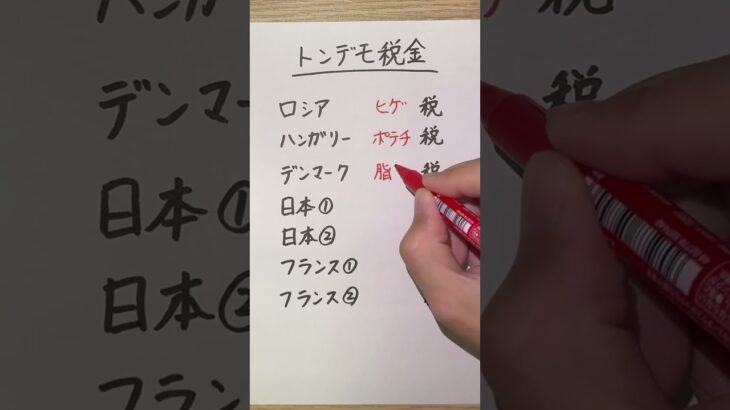 トンデモ税金
ロシア ヒゲ 税
ハンガリー ポテチ 税
デンマーク 脂 税
日本①
日本②
フランス①
フランス②